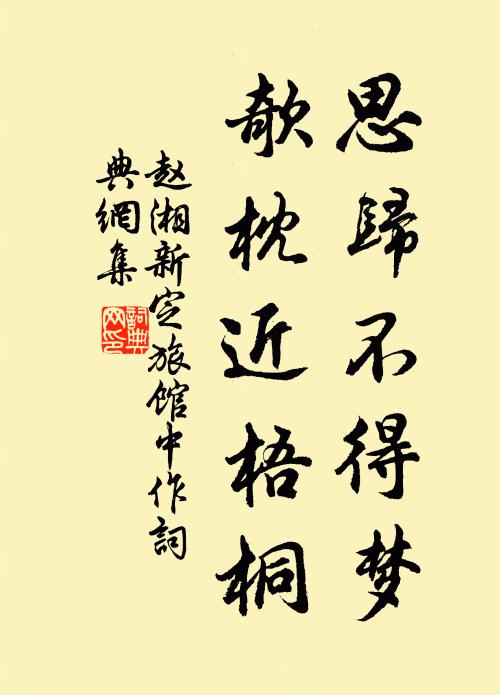 思歸不得梦
欹枕近梧桐
赵湘新定旅馆中作詞
典網集
詞典
网印